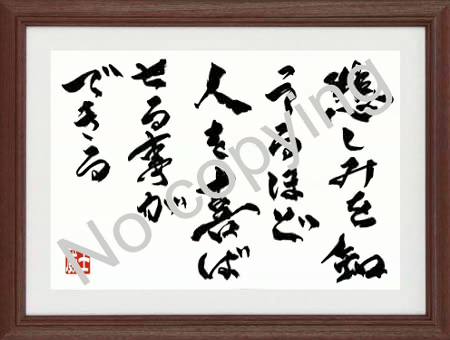 悲しみを知
うるほど
人を喜ば
せる事が
できる
No copying